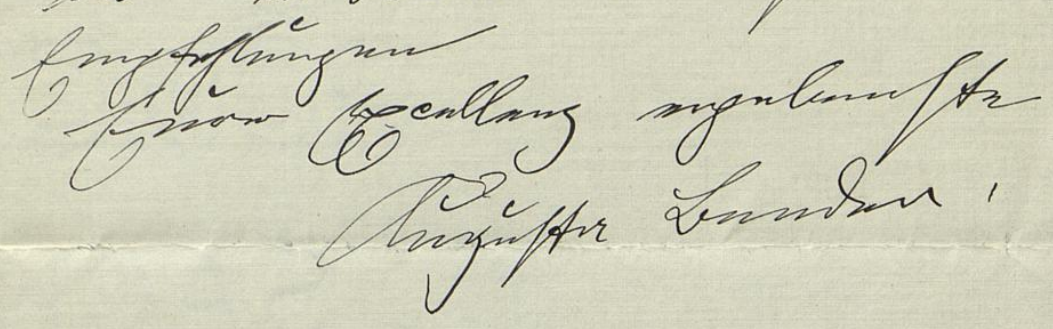 Empfehlungen
Eurer Excellenz ergebenste
Auguste Bender.